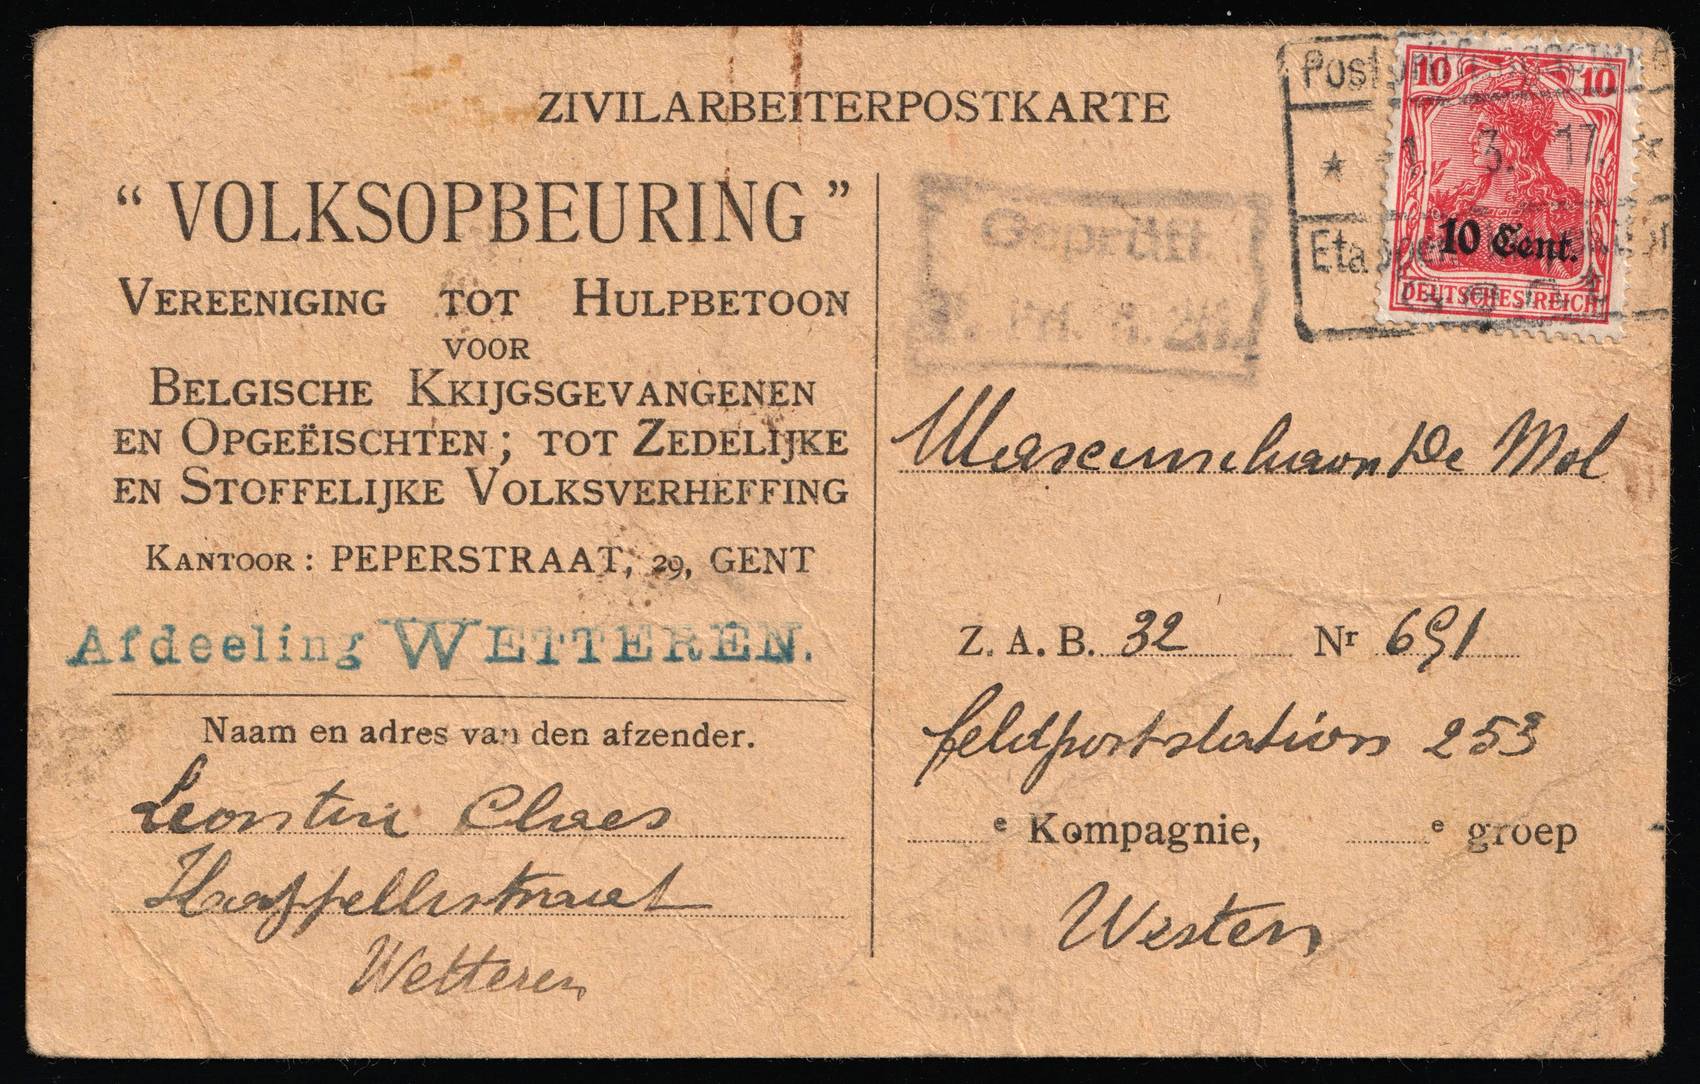 ZIVILARBEITERPOSTKARTE
“ VOLKSOPBEURING ”
VEREENIGING TOT HULPBETOON
VOOR
BELGISCHE KKIJGSGEVANGENEN
EN OPGEËISCHTEN; TOT ZEDELIJKE
EN STOFFELIJKE VOLKSVERHEFFING
KANTOOR : PEPERSTRAAT, 29, GENT
Afdeeling WETTEREN.
Naam en adres van den afzender.
Leontin Claes
Kappellestraat
Wetteren
10 10
1. 3. 17.
10 Cent.
DEUTSCHES REICH
Geprüft
De Mol
Z. A. B. 32 Nr 691
feldpoststation 253
e Kompagnie, e groep
Westen